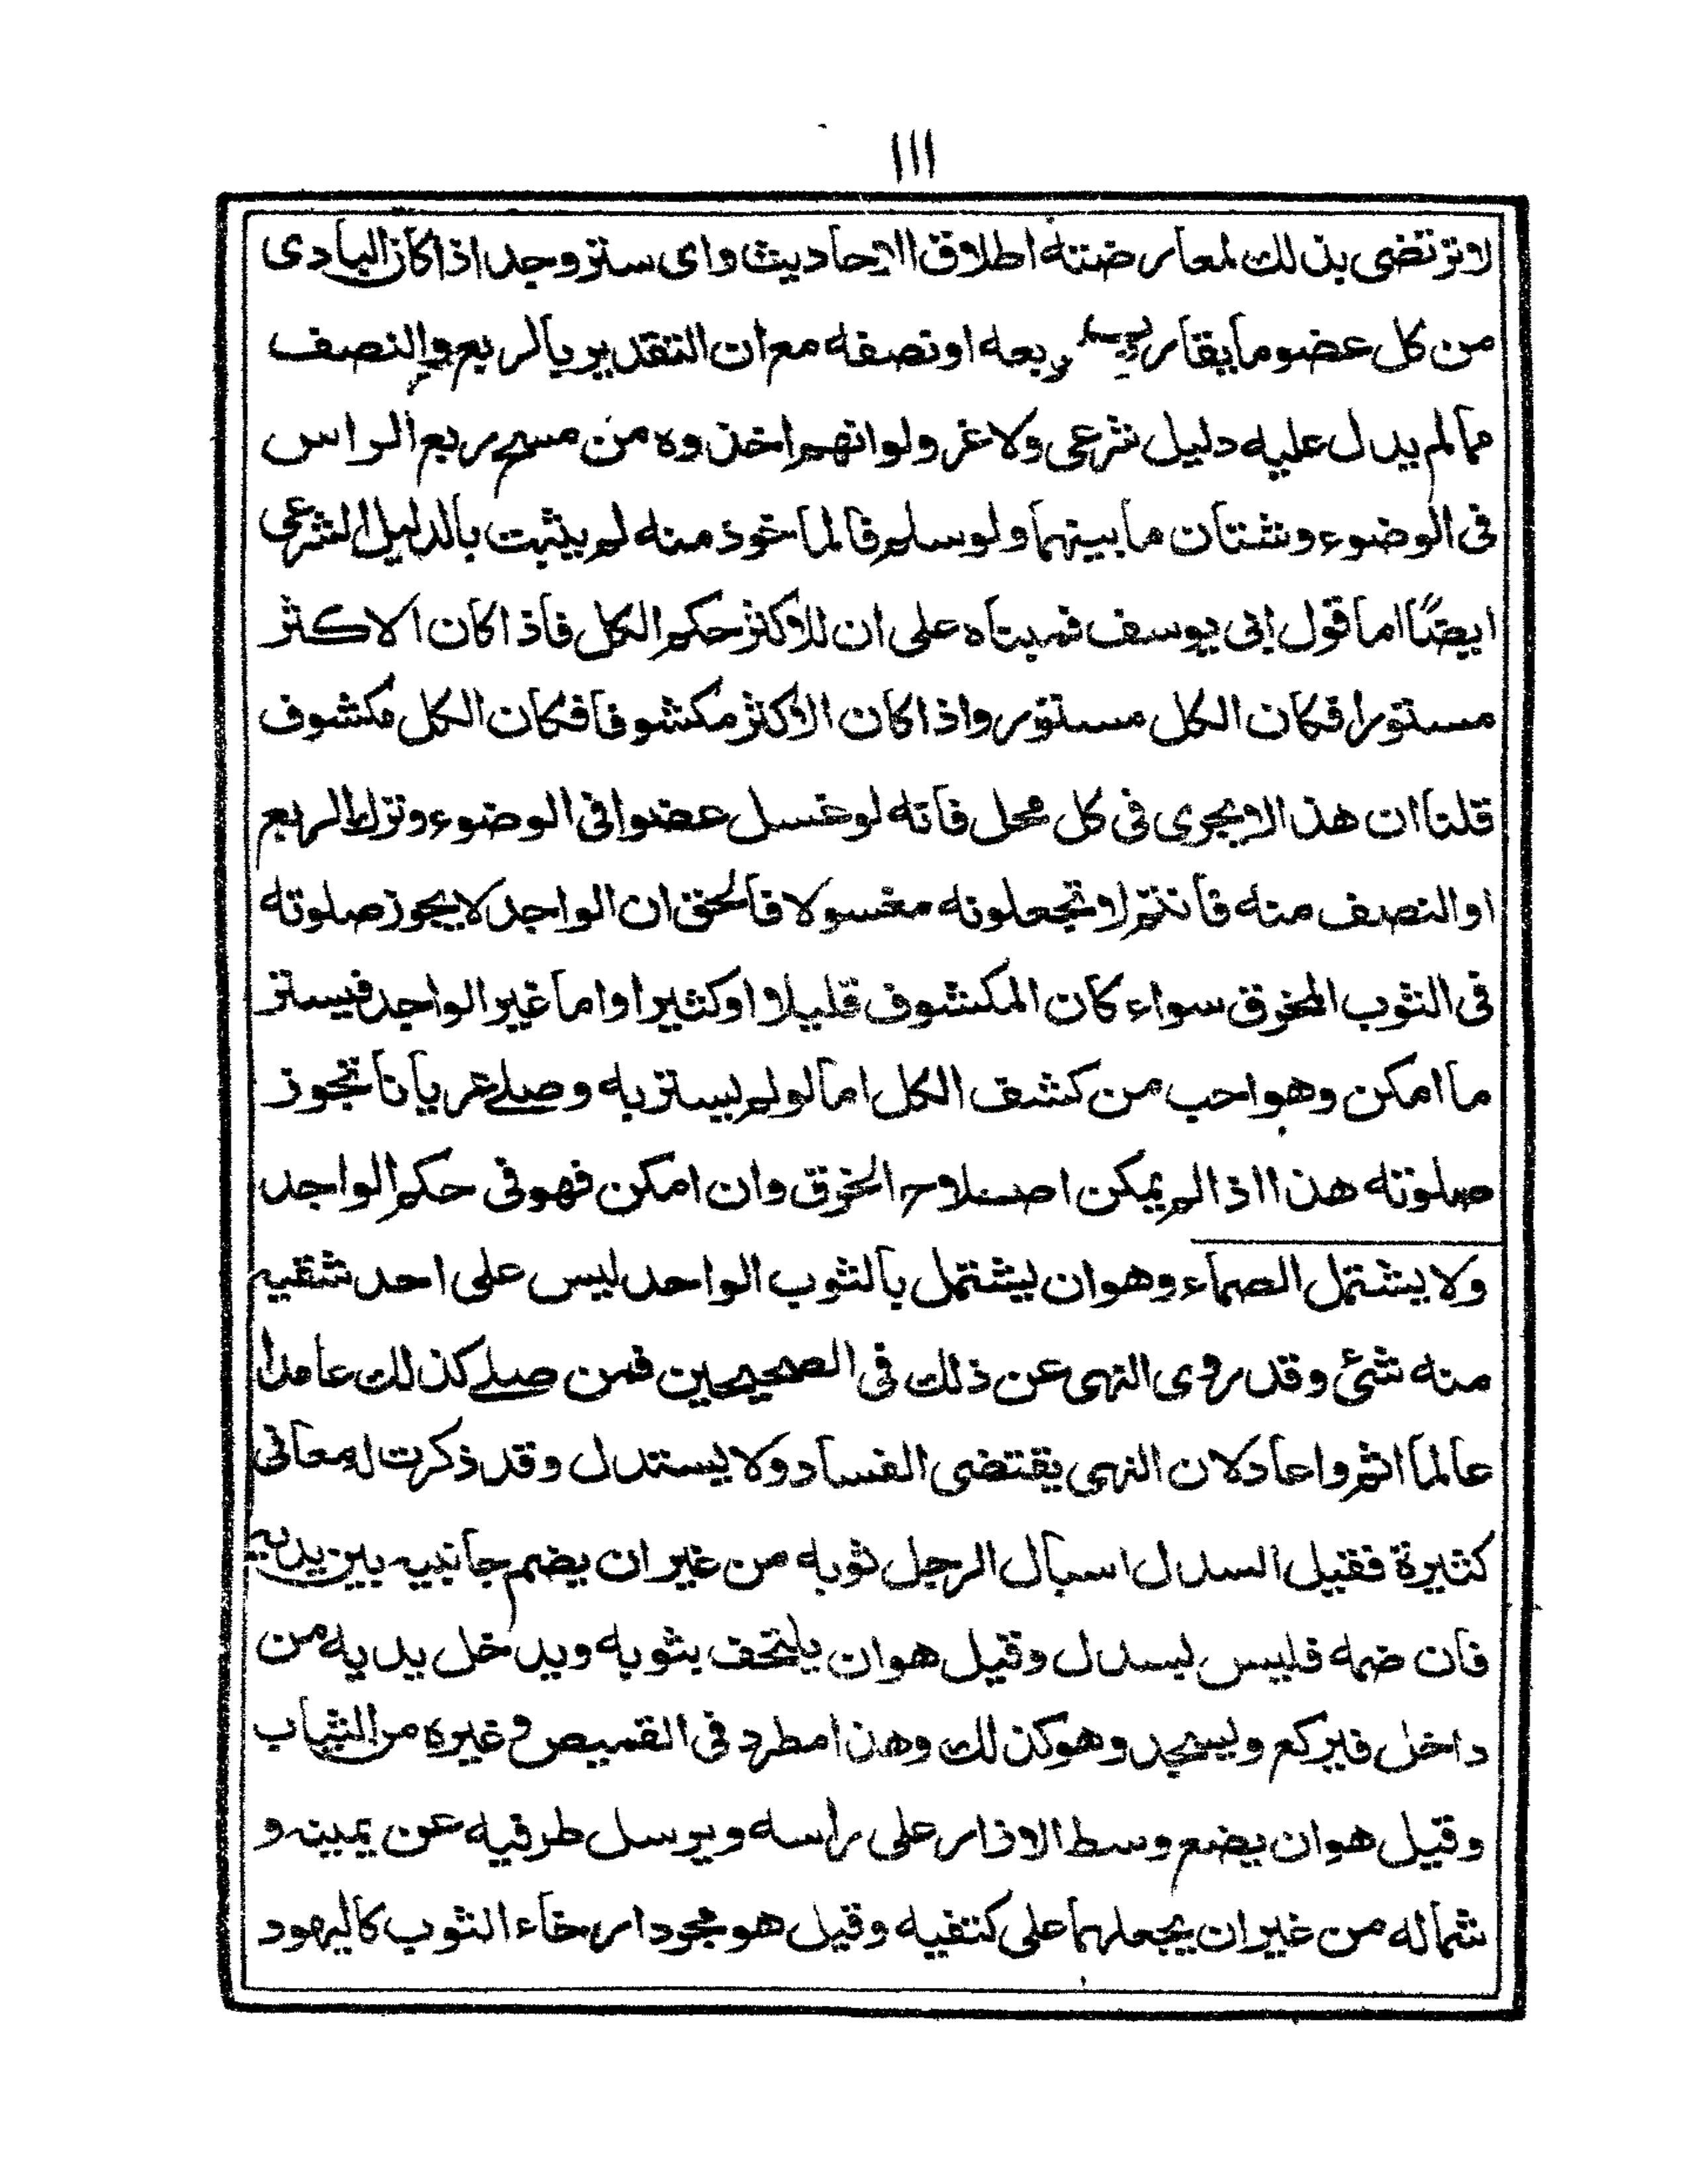 ١١١
لا ترتضى بذلك لمعارضته اطلاق الاحاديث واى ستر وجد اذا كان البادى
من كل عضو ما يقارب ربعه او نصفه مع ان التقدير بالربع والنصف
مما لم يدل عليه دليل شرعى ولا غرو لو انهم اخذوه من مسح ربع الراس
فى الوضوء وشتان ما بينهما ولو سلم فالماخوذ منه لم يثبت بالدليل الشرعى
ايضًا اما قول ابى يوسف فمبناه على ان للاكثر حكم الكل فاذا كان الاكثر
مستورا فكان الكل مستور واذا كان الاكثر مكشوفا فكان الكل مكشوف
قلنا ان هذا لا يجرى فى كل محل فانه لو غسل عضوا فى الوضوء وترك الربع
او النصف منه فانتم لا تجعلونه مغسولا فالحق ان الواجد لا يجوز صلوته
فى الثوب المخرق سواء كان المكشوف قليلا او كثيرا واما غير الواجد فيستر
ما امكن وهو احب من كشف الكل اما لو لم يستر به وصلے عريانا تجوز
صلوته هذا اذا لم يمكن اصلاح الخرق وان امكن فهو فى حكم الواجد
ولا يشتمل الصماء وهو ان يشتمل بالثوب الواحد ليس على احد شقيه
منه شئ وقد روى النهى عن ذلك فى الصحيحين فمن صلے كذلك عامدا
عالما اثم واعاد لان النهى يقتضى الفساد ولا يستدل وقد ذكرت له معانى
كثيرة فقيل السدل اسبال الرجل ثوبه من غير ان يضم جانبيه بين يديه
فان ضمه فليس لسدل وقيل هو ان يلتحف بثوبه ويدخل يديه من
داخل فيركع ويسجد وهو كذلك وهذا مطرد فى القميص وغيره من الثياب
وقيل هو ان يضع وسط الازار على راسه ويرسل طرفيه عن يمينه و
شماله من غير ان يجعلهما على كتفيه وقيل هو مجود ارخاء الثوب كاليهود